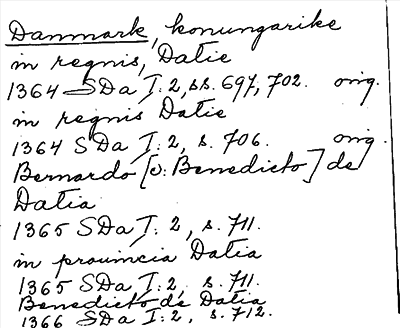 Danmark, konungarike
in regnis, Datie
1364 SDa I: 2, ss. 697, 702. orig.
in regnis Datie
1364 SDa I: 2, s. 706. orig.
Bernardo [o: Benedicto] de
Datia
1365 SDa I: 2, s. 711.
in prouincia Datia
1365 SDa I: 2, s. 711.
Benedicto de Datia
1366 SDa I: 2, s. 712.